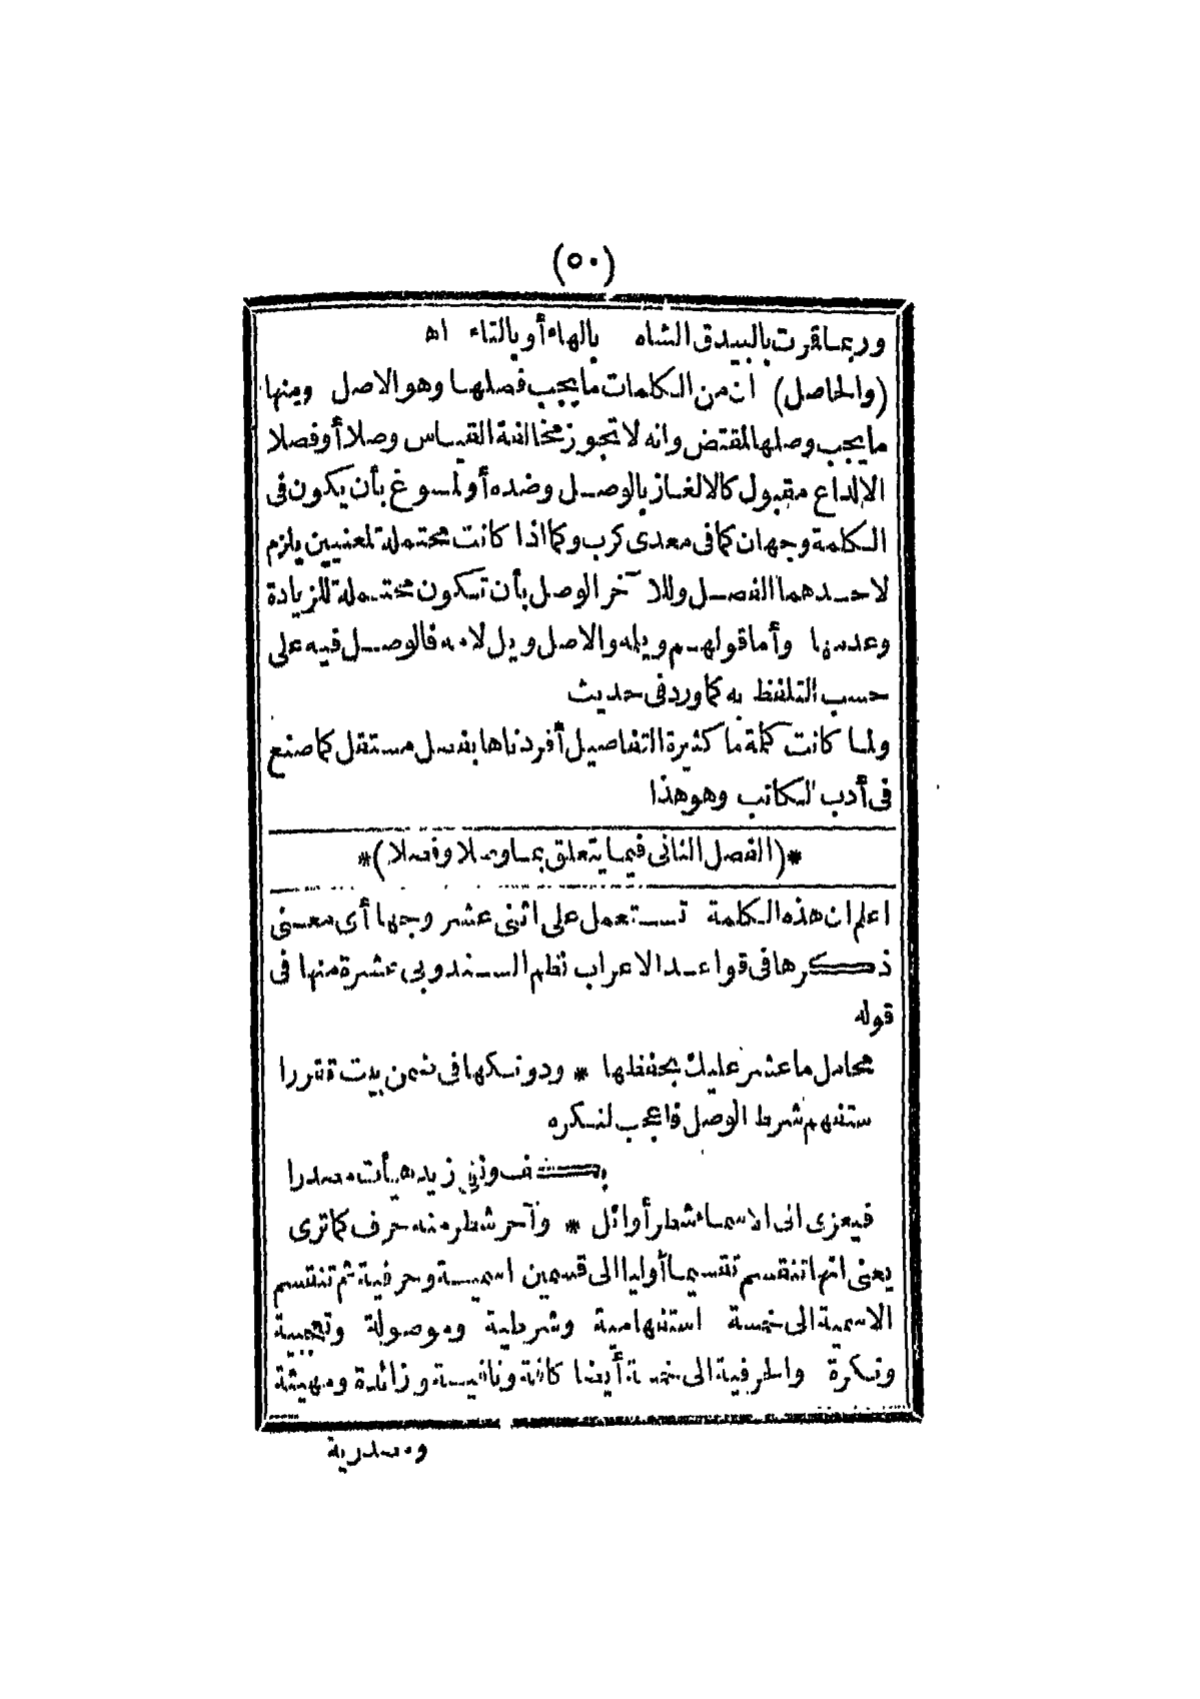 (٥٠)
وربما قرت بالبيدق الشاه بالهاء أو بالتاء اه
(والحاصل) أن من الكلمات ما يجب فصلها وهو الاصل ومنها
ما يجب وصلها لمقتض وانه لا تجوز مخالفة القياس وصلا أو فصلا
الا لداع مقبول كالالغاز بالوصل وضده أو لمسوغ بأن يكون فى
الكلمة وجهان كما فى معدى كرب وكما اذا كانت محتملة لمعنيين يلزم
لاحدهما الفصل وللا خر الوصل بأن تكون محتملة للزيادة
وعدمها وأما قولهم ويلمه والاصل ويل لامه فالوصل فيه على
حسب التلفظ به كما ورد فى حديث
ولما كانت كلمة ما كثيرة التفاصيل أفردناها بفصل مستقل كما صنع
فى أدب الكاتب وهو هذا
*(الفصل الثانى فيما يتعلق بما وصلا وفصلا)*
اعلم ان هذه الكلمة تستعمل على اثنى عشر وجها أى معنى
ذكرها فى قواعد الاعراب نظم السندوبى عشرة منها فى
قوله
محامل ما عشر عليك بحفظها * ودونكها فى ضمن بيت تقررا
ستفهم شرط الوصل فاعجب لنكره
بكف ونفى زيد هيأت مصدرا
فيعزى الى الاسماء شطر أوائل * وآخر شطر منه حرف كما ترى
يعنى انها تنقسم تقسيما أوليا الى قسمين اسمية وحرفية ثم تنقسم
الاسمية الى خمسة استفهامية وشرطية وموصولة وتعجبية
ونكرة والحرفية الى خمسة أيضا كافة ونافية وزائدة ومهيئة
ومصدرية